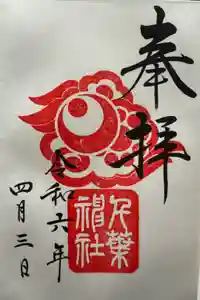 奉拝
葉
神社
令和六年
四月三日